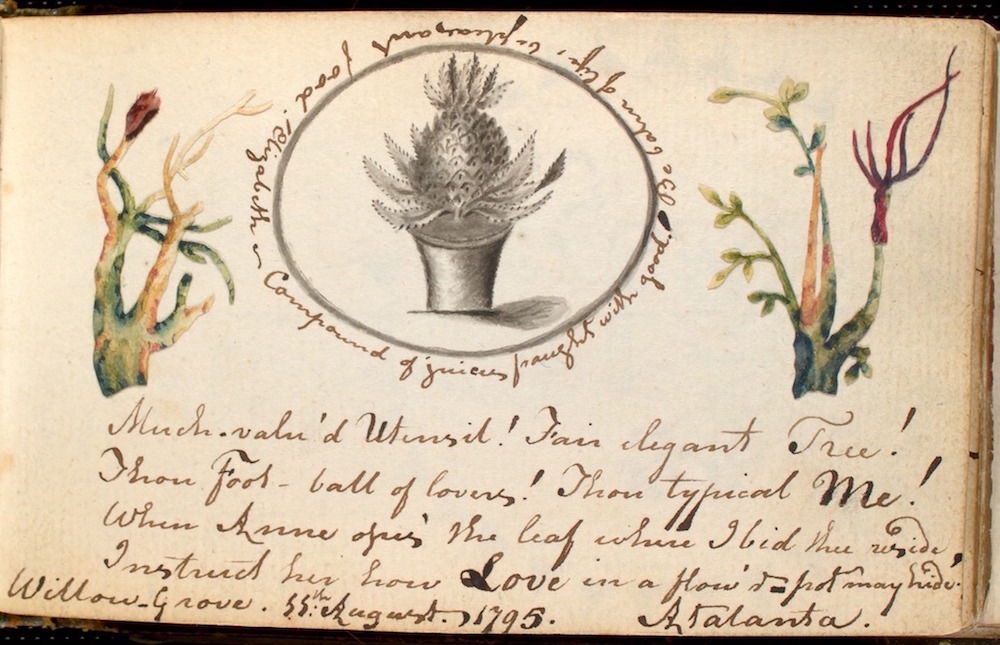 Compound of juices fraught with good! Be balm of life, & pleasant food! Elizabeth
Much-valu'd Utensil! Fair elegant Tree!
Thou Foot-ball of lovers! Thou typical Me!
When Anne ope's the leaf where I bid thee reside,
Instruct her how Love in a flow'r-pot may hide.
Willow-Grove. 11th August. 1795. Atalanta.